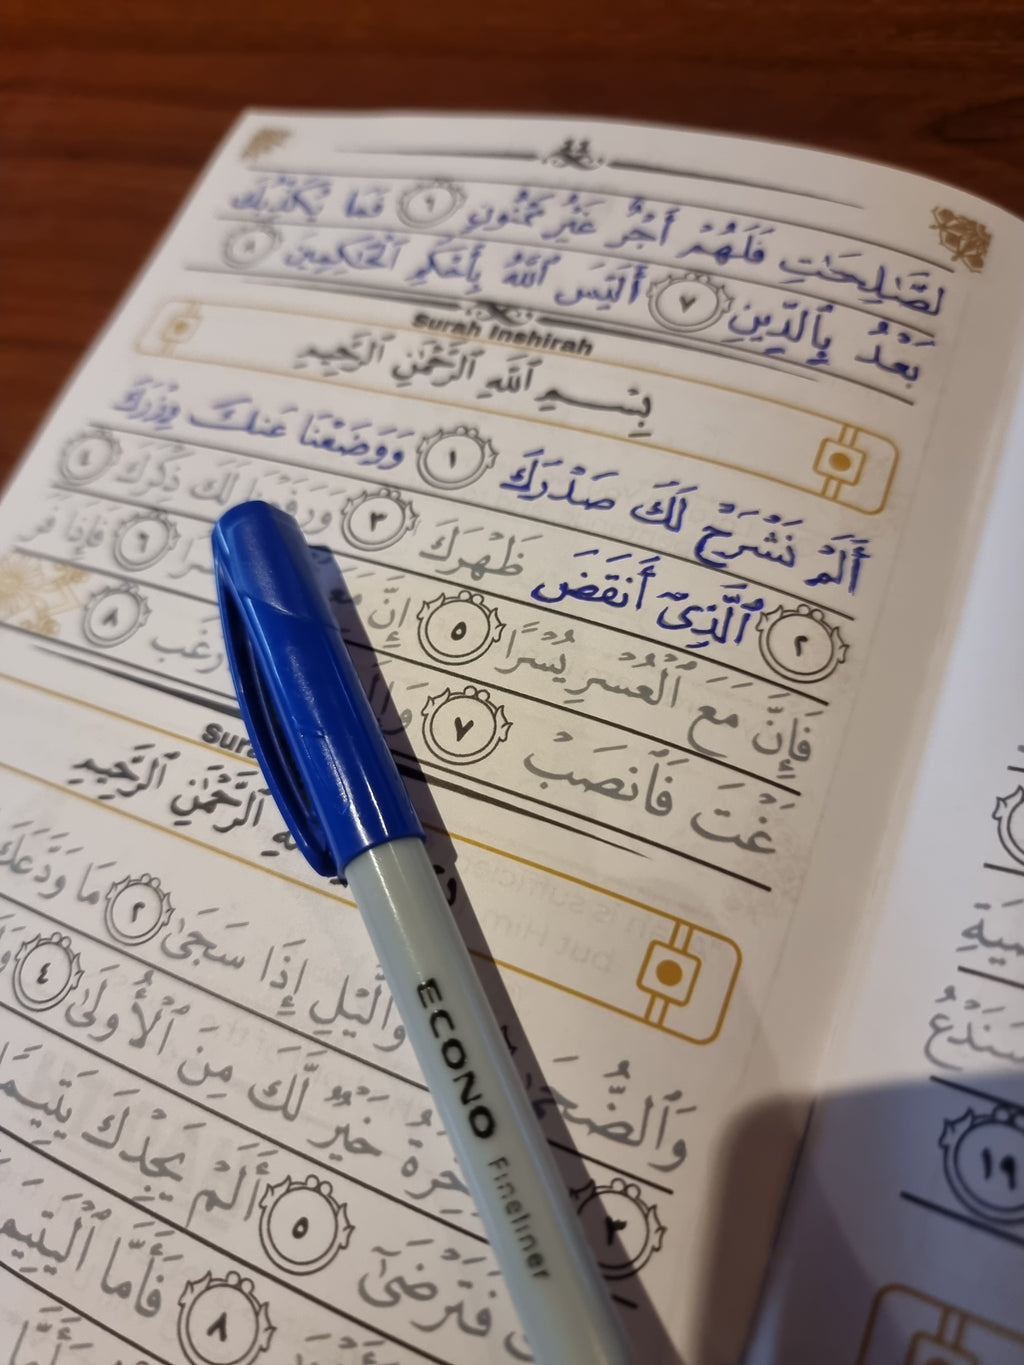 لصَّٰلِحَٰتِ فَلَهُمْ أَجْرٌ غَيْرُ مَمْنُونٍ ٦ فَمَا يُكَذِّبُكَ
بَعْدُ بِٱلدِّينِ ٧ أَلَيْسَ ٱللَّهُ بِأَحْكَمِ ٱلْحَٰكِمِينَ ٨
Surah Inshirah
بِسْمِ ٱللَّهِ ٱلرَّحْمَٰنِ ٱلرَّحِيمِ
أَلَمْ نَشْرَحْ لَكَ صَدْرَكَ ١ وَوَضَعْنَا عَنكَ وِزْرَكَ
٢ ٱلَّذِىٓ أَنقَضَ ظَهْرَكَ ٣ وَرَفَعْنَا لَكَ ذِكْرَكَ ٤
فَإِنَّ مَعَ ٱلْعُسْرِ يُسْرًا ٥ إِنَّ مَعَ ٦ فَإِذَا فَرَ
غْتَ فَٱنصَبْ ٧ ٨
ٱلرَّحْمَٰنِ ٱلرَّحِيمِ
وَٱلضُّحَىٰ وَٱلَّيْلِ إِذَا سَجَىٰ ٢ مَا وَدَّعَكَ
٣ خَيْرٌ لَّكَ مِنَ ٱلْأُولَىٰ ٤
فَتَرْضَىٰٓ ٥ أَلَمْ يَجِدْكَ يَتِيمًا
٨ فَأَمَّا ٱلْيَتِيمَ
ECONO Fineliner
سَنَدْعُ
١٩